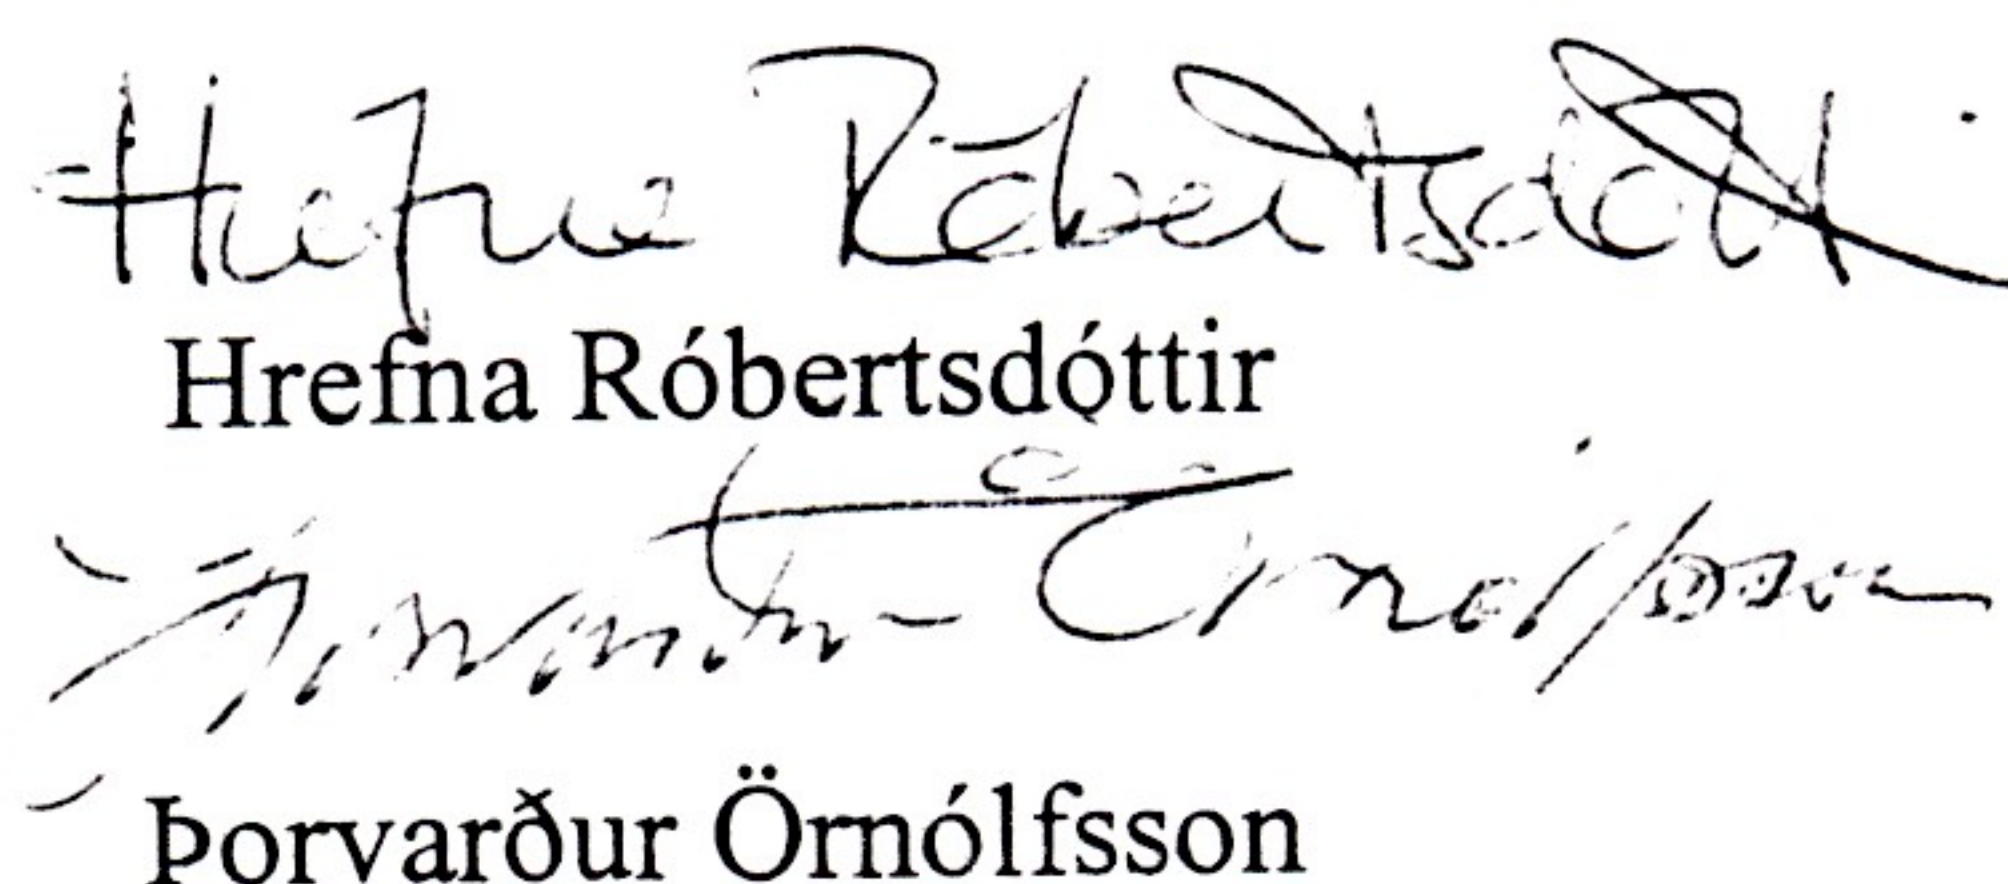 Hrefna Róbertsdótti
Hrefna Róbertsdóttir
Þorvarður Örnólfsson
Þorvarður Örnólfsson